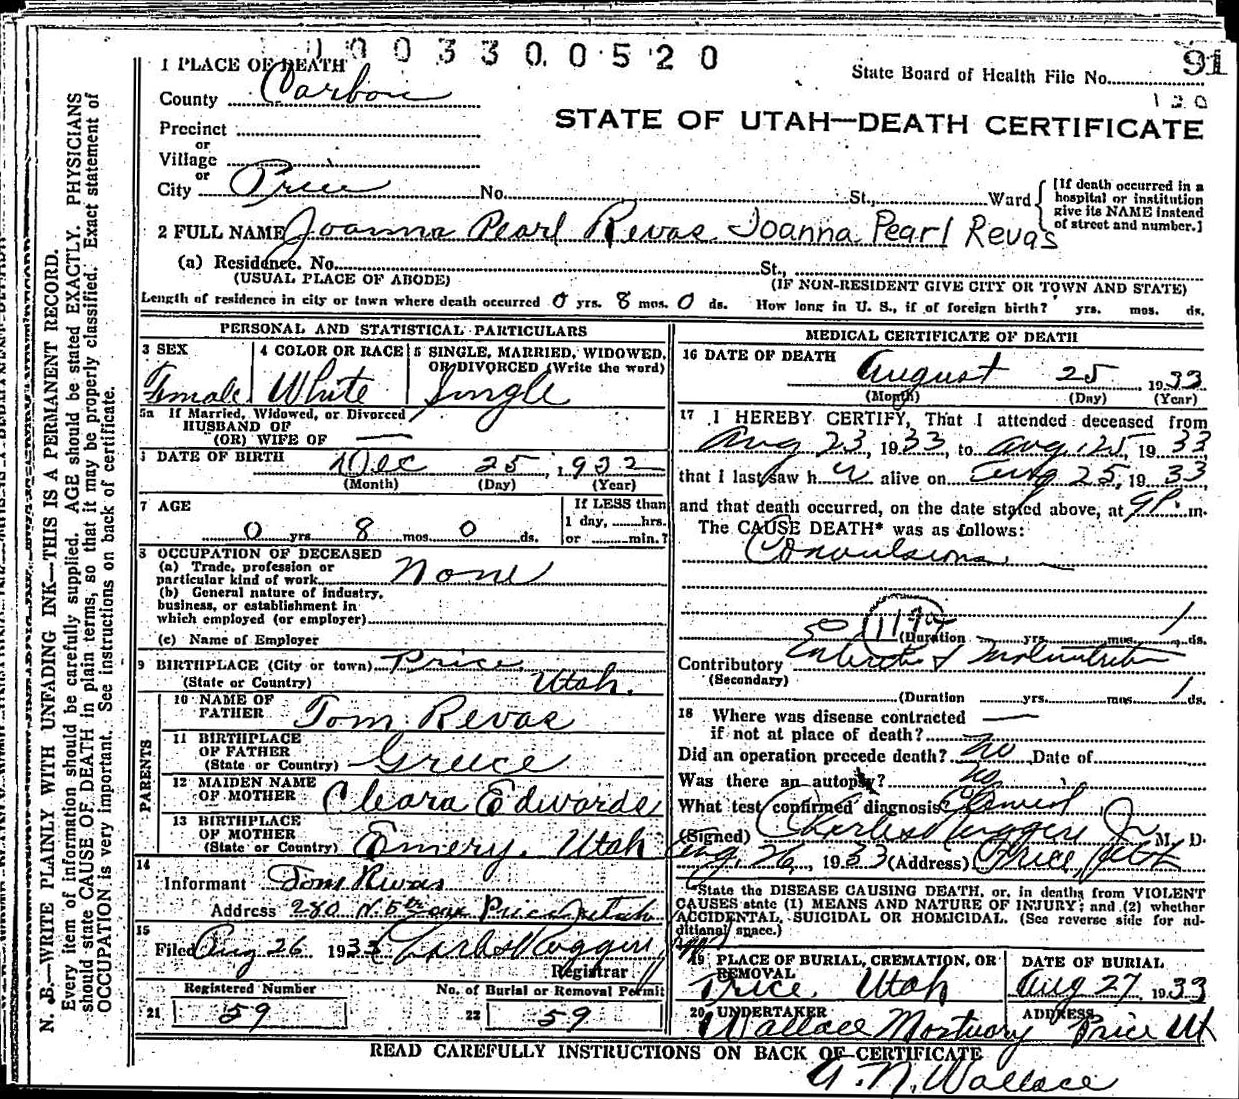 1003300520
91
1 PLACE OF DEATH
State Board of Health File No.
County Carbon
120
STATE OF UTAH—DEATH CERTIFICATE
Precinct
or
Village
or
City Price No. St., Ward
[If death occurred in a hospital or institution give its NAME instead of street and number.]
2 FULL NAME Joanna Pearl Revas Joanna Pearl Revas
(a) Residence. No. St.,
(USUAL PLACE OF ABODE) (IF NON-RESIDENT GIVE CITY OR TOWN AND STATE)
Length of residence in city or town where death occurred 0 yrs. 8 mos. 0 ds. How long in U. S., if of foreign birth? yrs. mos. ds.
PERSONAL AND STATISTICAL PARTICULARS
3 SEX
Female
4 COLOR OR RACE
White
5 SINGLE, MARRIED, WIDOWED, OR DIVORCED (Write the word)
Single
5a If Married, Widowed, or Divorced
HUSBAND OF
(OR) WIFE OF —
DATE OF BIRTH Dec 25, 1932
(Month) (Day) (Year)
7 AGE
0 yrs. 8 mos. 0 ds.
If LESS than
1 day, hrs.
or min.?
8 OCCUPATION OF DECEASED
(a) Trade, profession or
particular kind of work None
(b) General nature of industry,
business, or establishment in
which employed (or employer)
(c) Name of Employer
9 BIRTHPLACE (City or town) Price
(State or Country) Utah.
PARENTS
10 NAME OF FATHER Tom Revas
11 BIRTHPLACE OF FATHER
(State or Country) Greece
12 MAIDEN NAME OF MOTHER Cleara Edwards
13 BIRTHPLACE OF MOTHER
(State or Country) Emery, Utah
14
Informant Tom Rivas
Address 280 N. 5th Price Utah
15
Filed Aug 26 1933 Charles Ruggeri
Registrar
Registered Number No. of Burial or Removal Permit
21 59 22 59
MEDICAL CERTIFICATE OF DEATH
16 DATE OF DEATH
August 25, 1933
(Month) (Day) (Year)
17 I HEREBY CERTIFY, That I attended deceased from
Aug 23, 1933, to Aug, 25, 1933,
that I last saw h er alive on Aug 25, 1933,
and that death occurred, on the date stated above, at 9 P. m.
The CAUSE DEATH* was as follows:
Convulsions
119
(Duration yrs. mos. 1 ds.
Contributory Enteritis & Malnutrition
(Secondary)
(Duration yrs. mos. 1 ds.
18 Where was disease contracted
if not at place of death? —
Did an operation precede death? No Date of
Was there an autopsy? No
What test confirmed diagnosis? Clinical
(Signed) Charles Ruggeri Jr M. D.
Aug. 26, 1933 (Address) Price, Utah
*State the DISEASE CAUSING DEATH, or, in deaths from VIOLENT
CAUSES state (1) MEANS AND NATURE OF INJURY; and (2) whether
ACCIDENTAL, SUICIDAL OR HOMICIDAL. (See reverse side for ad-
ditional space.)
19 PLACE OF BURIAL, CREMATION, OR REMOVAL
Price, Utah
DATE OF BURIAL
Aug 27 1933
20 UNDERTAKER
Wallace Mortuary
ADDRESS
Price Ut
READ CAREFULLY INSTRUCTIONS ON BACK OF CERTIFICATE
A. N. Wallace
N. B.—WRITE PLAINLY WITH UNFADING INK—THIS IS A PERMANENT RECORD.
Every item of information should be carefully supplied. AGE should be stated EXACTLY. PHYSICIANS
should state CAUSE OF DEATH in plain terms, so that it may be properly classified. Exact statement of
OCCUPATION is very important. See instructions on back of certificate.